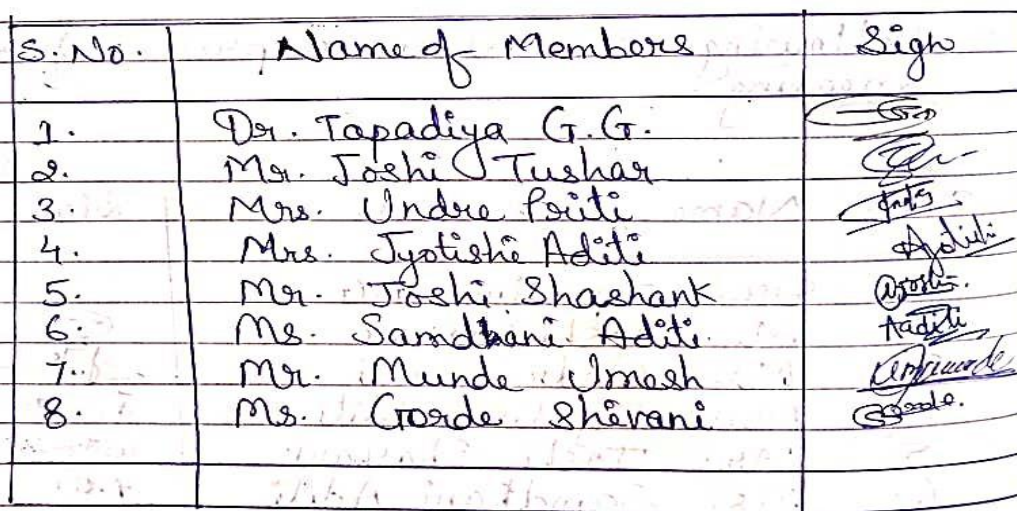 S. No. Name of Members Sign
1. Dr. Tapadiya G.G.
2. Mr. Joshi Tushar
3. Mrs. Undre Priti
4. Mrs. Jyotishi Aditi
5. Mr. Joshi Shashank
6. Ms. Samdhani Aditi Aaditi
7. Mr. Munde Umesh
8. Ms. Gorde Shivani Gorde.